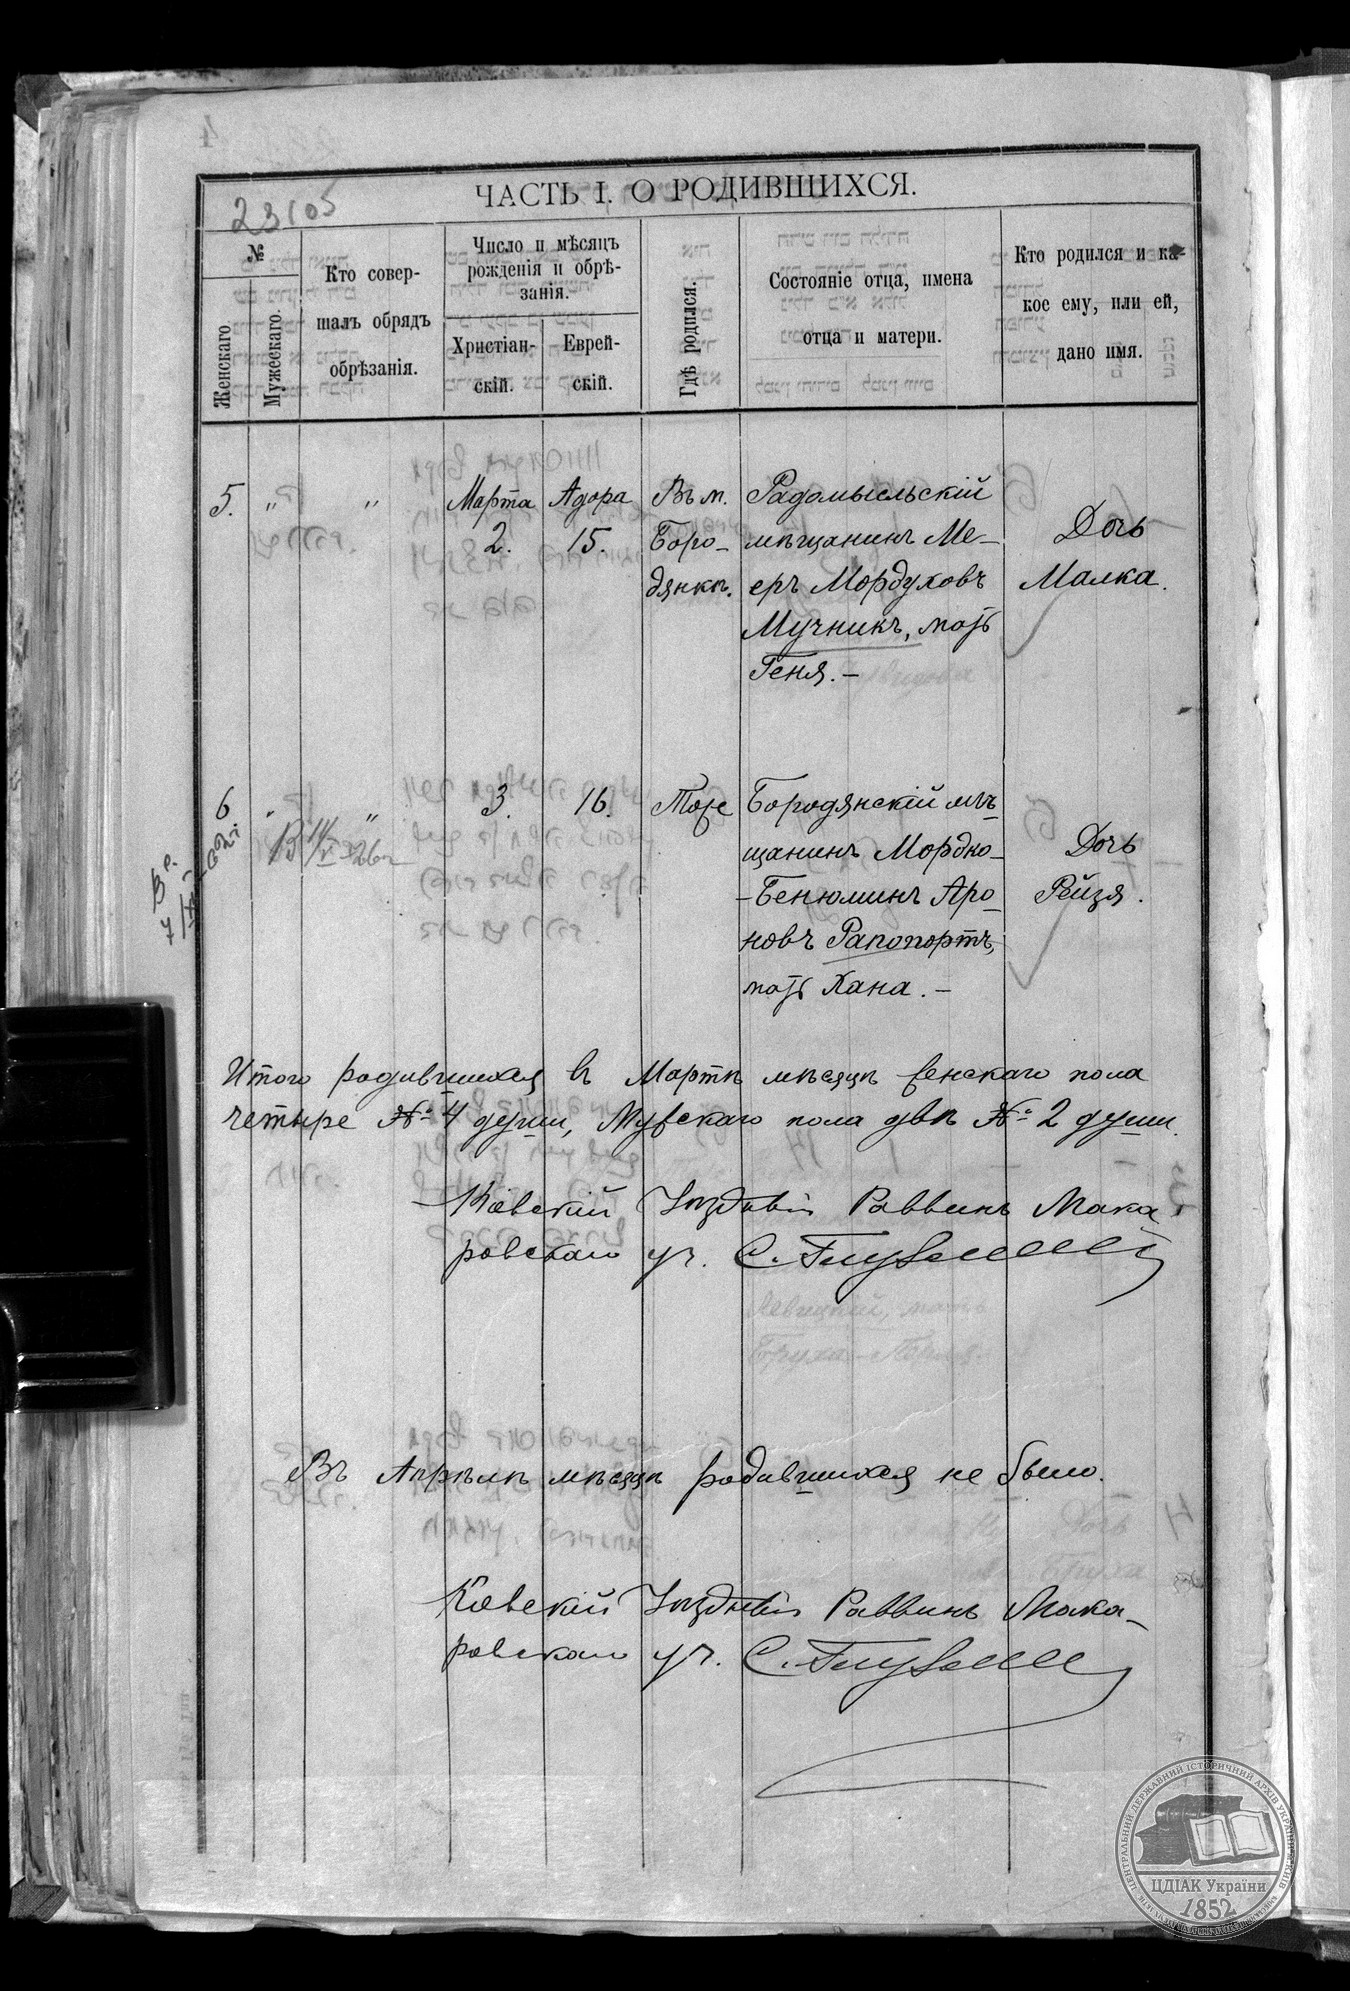 ЧАСТЬ I. О РОДИВШИХСЯ.
23105
№
Женскаго
Мужескаго.
Кто совер-
шалъ обрядъ
обрѣзанія.
Число и мѣсяцъ
рожденія и обрѣ-
занія.
Христіан-
скій.
Еврей-
скій.
Гдѣ родился.
Состояніе отца, имена
отца и матери.
Кто родился и ка-
кое ему, или ей,
дано имя.
5. " " Марта Адара Въ м. Радомысльскій
2. 15. Боро- мѣщанинъ Ме- Дочь
дянкѣ. еръ Мордуховъ Малка.
Мучникъ, мать
Геня.-
6 " " 3. 16. Тоже Бородянскій мѣ-
щанинъ Мордко- Дочь
-Бенюминъ Аро- Рейзя.
новъ Рапопортъ,
мать Хана.-
Итого родившихся въ Мартѣ мѣсяцѣ женскаго пола
четыре № 4 души, Мужскаго пола двѣ № 2 души.
Кіевскій Уѣздный Раввинъ Мака-
ровскаго уч. С.
Въ Апрѣлѣ мѣсяцѣ родившихся не было.
Кіевскій Уѣздный Раввинъ Мака-
ровскаго уч. С.
ЦЕНТРАЛЬНИЙ ДЕРЖАВНИЙ ІСТОРИЧНИЙ АРХІВ УКРАЇНИ, М. КИЇВ
ЦДІАК України
1852